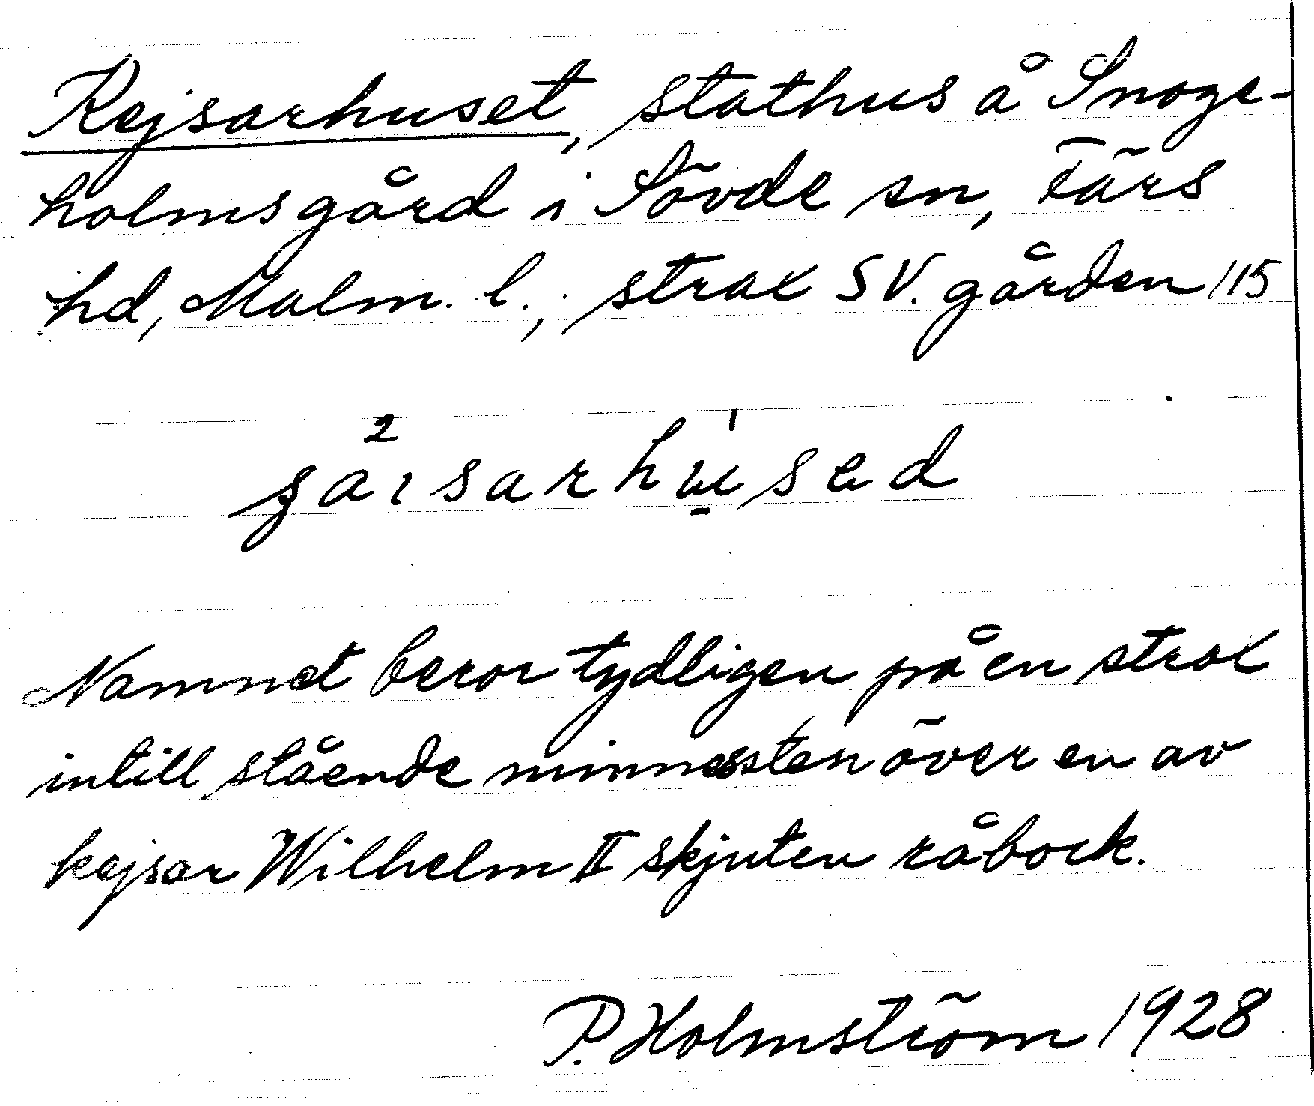 Kejsarhuset, stathus å Snoge-
holmsgård i Sövde sn, Färs
hd, Malm. l., strax SV. gården 115
Namnet beror tydligen på en strax
intill stående minnessten över en av
kejsar Wilhelm II skjuten råbock.
P. Holmström 1928